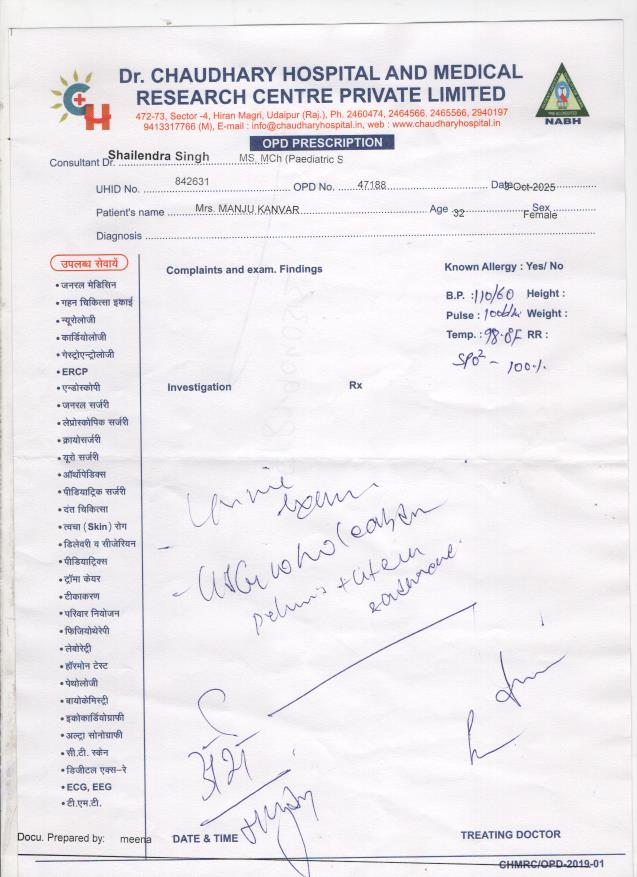 Dr. CHAUDHARY HOSPITAL AND MEDICAL
RESEARCH CENTRE PRIVATE LIMITED
472-73, Sector -4, Hiran Magri, Udaipur (Raj.), Ph. 2460474, 2464566, 2465566, 2940197
9413317766 (M), E-mail : info@chaudharyhospital.in, web : www.chaudharyhospital.in
CH
NABH
OPD PRESCRIPTION
Consultant Dr. Shailendra Singh MS, MCh (Paediatric S
UHID No. 842631 OPD No. 47188 Date 3-Oct-2025
Patient's name Mrs. MANJU KANVAR Age 32 Sex Female
Diagnosis
उपलब्ध सेवायें
• जनरल मेडिसिन
• गहन चिकित्सा इकाई
• न्यूरोलोजी
• कार्डियोलोजी
• गेस्ट्रोएन्ट्रोलोजी
• ERCP
• एन्डोस्कोपी
• जनरल सर्जरी
• लेप्रोस्कोपिक सर्जरी
• क्रायोसर्जरी
• यूरो सर्जरी
• ऑर्थोपेडिक्स
• पीडियाट्रिक सर्जरी
• दंत चिकित्सा
• त्वचा (Skin) रोग
• डिलेवरी व सीजेरियन
• पीडियाट्रिक्स
• ट्रॉमा केयर
• टीकाकरण
• परिवार नियोजन
• फिजियोथेरेपी
• लेबोरेट्री
• हॉरमोन टेस्ट
• पेथोलोजी
• बायोकेमिस्ट्री
• इकोकार्डियोग्राफी
• अल्ट्रा सोनोग्राफी
• सी.टी. स्केन
• डिजीटल एक्स-रे
• ECG, EEG
• टी.एम.टी.
Complaints and exam. Findings
Known Allergy : Yes/ No
B.P. : 110/60 Height :
Pulse : Weight :
Temp. : 98.8F RR :
SPO2 - 100%
Investigation Rx
Docu. Prepared by: meena
DATE & TIME
TREATING DOCTOR
CHMRC/OPD-2019-01